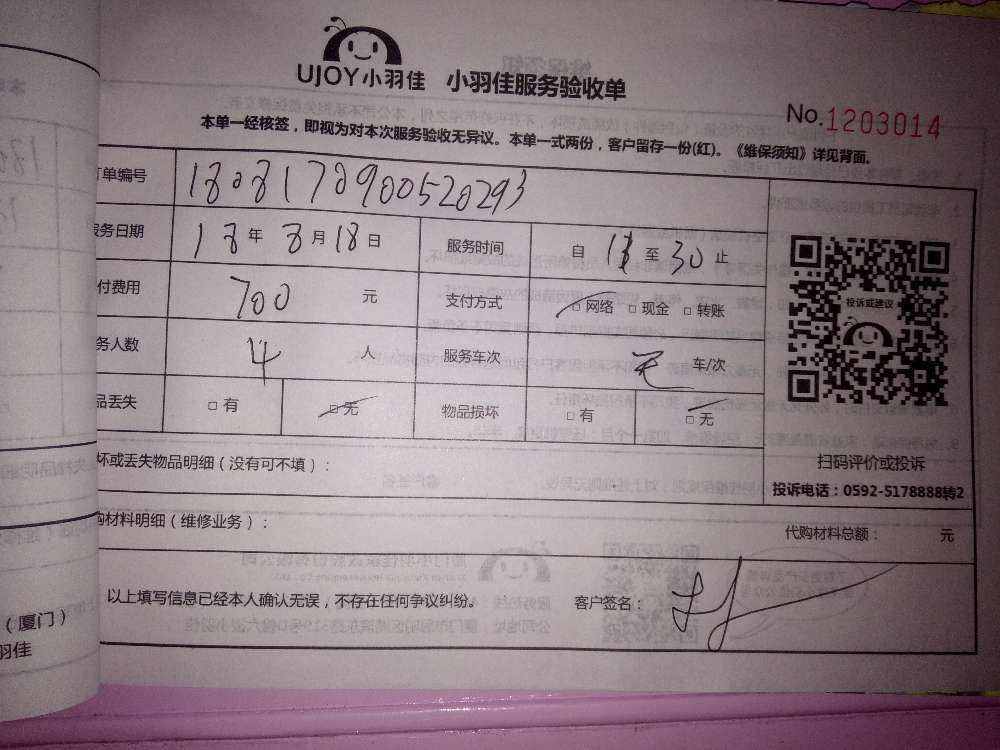 UJOY小羽佳 小羽佳服务验收单
No.1203014
本单一经核签，即视为对本次服务验收无异议。本单一式两份，客户留存一份(红)。《维保须知》详见背面。
订单编号 1808170900520293
服务日期 18年8月18日 服务时间 自 至30止
付费用 700元 支付方式 □网络 □现金 □转账
务人数 4人 服务车次 无 车/次
品丢失 □有 □无 物品损坏 □有 □无
投诉或建议
扫码评价或投诉
投诉电话：0592-5178888转2
坏或丢失物品明细（没有可不填）：
购材料明细（维修业务）： 代购材料总额： 元
以上填写信息已经本人确认无误，不存在任何争议纠纷。 客户签名：
（厦门）
羽佳